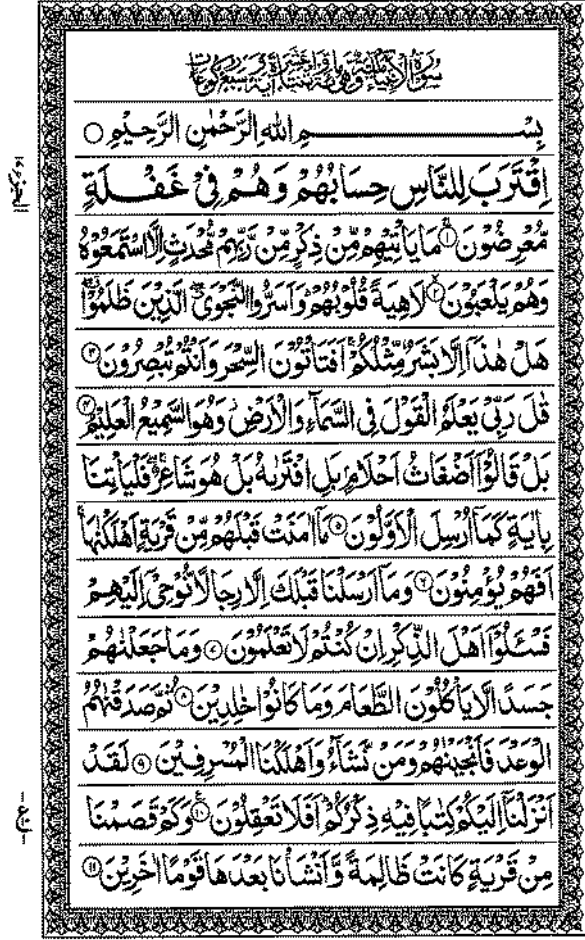 سُوْرَةُ الْاَنْبِيَاءِ اٰيَةً وَّسَبْعُ رُكُوْعَاتٍ
بِسْمِ اللهِ الرَّحْمٰنِ الرَّحِيْمِ ○
اِقْتَرَبَ لِلنَّاسِ حِسَابُهُمْ وَهُمْ فِيْ غَفْلَةٍ
مُّعْرِضُوْنَ ۝١ مَا يَاْتِيْهِمْ مِّنْ ذِكْرٍ مِّنْ رَّبِّهِمْ مُّحْدَثٍ اِلَّا اسْتَمَعُوْهُ
وَهُمْ يَلْعَبُوْنَ ۝٢ لَاهِيَةً قُلُوْبُهُمْ وَاَسَرُّوا النَّجْوَى الَّذِيْنَ ظَلَمُوْا
هَلْ هٰذَآ اِلَّا بَشَرٌ مِّثْلُكُمْ اَفَتَاْتُوْنَ السِّحْرَ وَاَنْتُمْ تُبْصِرُوْنَ ۝٣
قٰلَ رَبِّيْ يَعْلَمُ الْقَوْلَ فِي السَّمَآءِ وَالْاَرْضِ وَهُوَ السَّمِيْعُ الْعَلِيْمُ ۝٤
بَلْ قَالُوْٓا اَضْغَاثُ اَحْلَامٍ بَلِ افْتَرٰىهُ بَلْ هُوَ شَاعِرٌ فَلْيَاْتِنَا
بِاٰيَةٍ كَمَآ اُرْسِلَ الْاَوَّلُوْنَ ۝٥ مَآ اٰمَنَتْ قَبْلَهُمْ مِّنْ قَرْيَةٍ اَهْلَكْنٰهَا
اَفَهُمْ يُؤْمِنُوْنَ ۝٦ وَمَآ اَرْسَلْنَا قَبْلَكَ اِلَّا رِجَالًا نُّوْحِيْٓ اِلَيْهِمْ
فَسْـَٔلُوْٓا اَهْلَ الذِّكْرِ اِنْ كُنْتُمْ لَا تَعْلَمُوْنَ ۝٧ وَمَا جَعَلْنٰهُمْ
جَسَدًا لَّا يَاْكُلُوْنَ الطَّعَامَ وَمَا كَانُوْا خٰلِدِيْنَ ۝٨ ثُمَّ صَدَقْنٰهُمُ
الْوَعْدَ فَاَنْجَيْنٰهُمْ وَمَنْ نَّشَآءُ وَاَهْلَكْنَا الْمُسْرِفِيْنَ ۝٩ لَقَدْ
اَنْزَلْنَآ اِلَيْكُمْ كِتٰبًا فِيْهِ ذِكْرُكُمْ اَفَلَا تَعْقِلُوْنَ ۝١٠ وَكَمْ قَصَمْنَا
مِنْ قَرْيَةٍ كَانَتْ ظَالِمَةً وَّاَنْشَاْنَا بَعْدَهَا قَوْمًا اٰخَرِيْنَ ۝١١